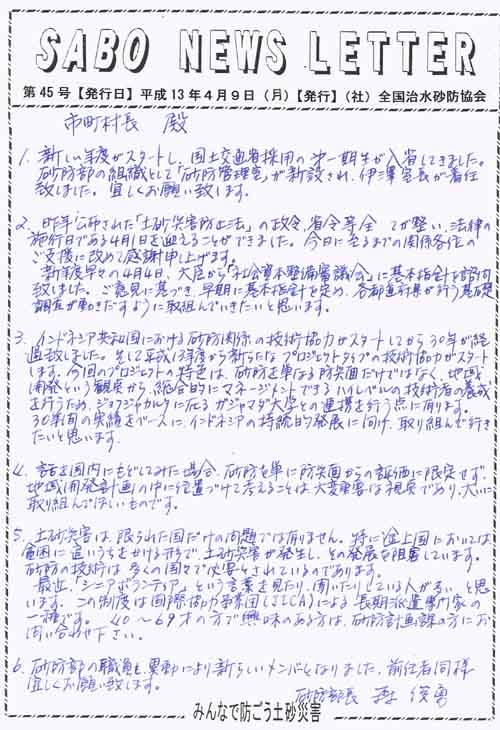 SABO NEWS LETTER
第45号【発行日】平成13年4月9日(月)【発行】(社)全国治水砂防協会
市町村長 殿
1. 新しい年度がスタートし、国土交通省採用の第一期生が入省してきました。
砂防部の組織として「砂防管理室」が新設され、伊澤室長が着任
致しました。宜しくお願い致します。
2. 昨年公布された「土砂災害防止法」の政令、省令等全てが整い、法律の
施行日である4月1日を迎えることができました。今日に至るまでの関係各位の
ご支援に改めて感謝申し上げます。
新年度早々の4月4日、大臣から「社会資本整備審議会」に基本指針を諮問
致しました。ご意見に基づき、早期に基本指針を定め、各都道府県が行う基礎
調査が動きだすように取組んでいきたいと思います。
3. インドネシア共和国における砂防関係の技術協力がスタートしてから30年が経
過致しました。そして平成13年度から新たなプロジェクトタイプの技術協力がスタート
します。今回のプロジェクトの特色は、砂防を単なる防災面だけではなく、地域
開発という観点から、総合的にマネージメントできるハイレベルの技術者の養成
を行うため、ジョグジャカルタに在るガジャマダ大学との連携を行う点に有ります。
30年間の実績をベースに、インドネシアの持続的発展に向け、取り組んで行き
たいと思います。
4. 話を国内にもどしてみた場合、砂防を単に防災面からの評価に限定せず、
地域開発計画の中に位置づけて考えることは、大変重要な視点であり、大いに
取り組んでほしいものです。
5. 土砂災害は、限られた国だけの問題では有りません。特に途上国においては
貧困に追いうちをかける形で、土砂災害が発生し、その発展を阻害しています。
砂防の技術は多くの国々で必要とされているのであります。
最近、「シニアボランティア」という言葉を見たり、聞いたりしている人が多いと思
います。この制度は国際協力事業団(JICA)による長期派遣専門家の
一種です。40〜69才の方で興味のある方は、砂防計画課の方にお
問い合わせ下さい。
6. 砂防部の職員も異動により新らしいメンバーとなりました。前任者同様
宜しくお願い致します。
砂防部長 森 俊勇
みんなで防ごう土砂災害